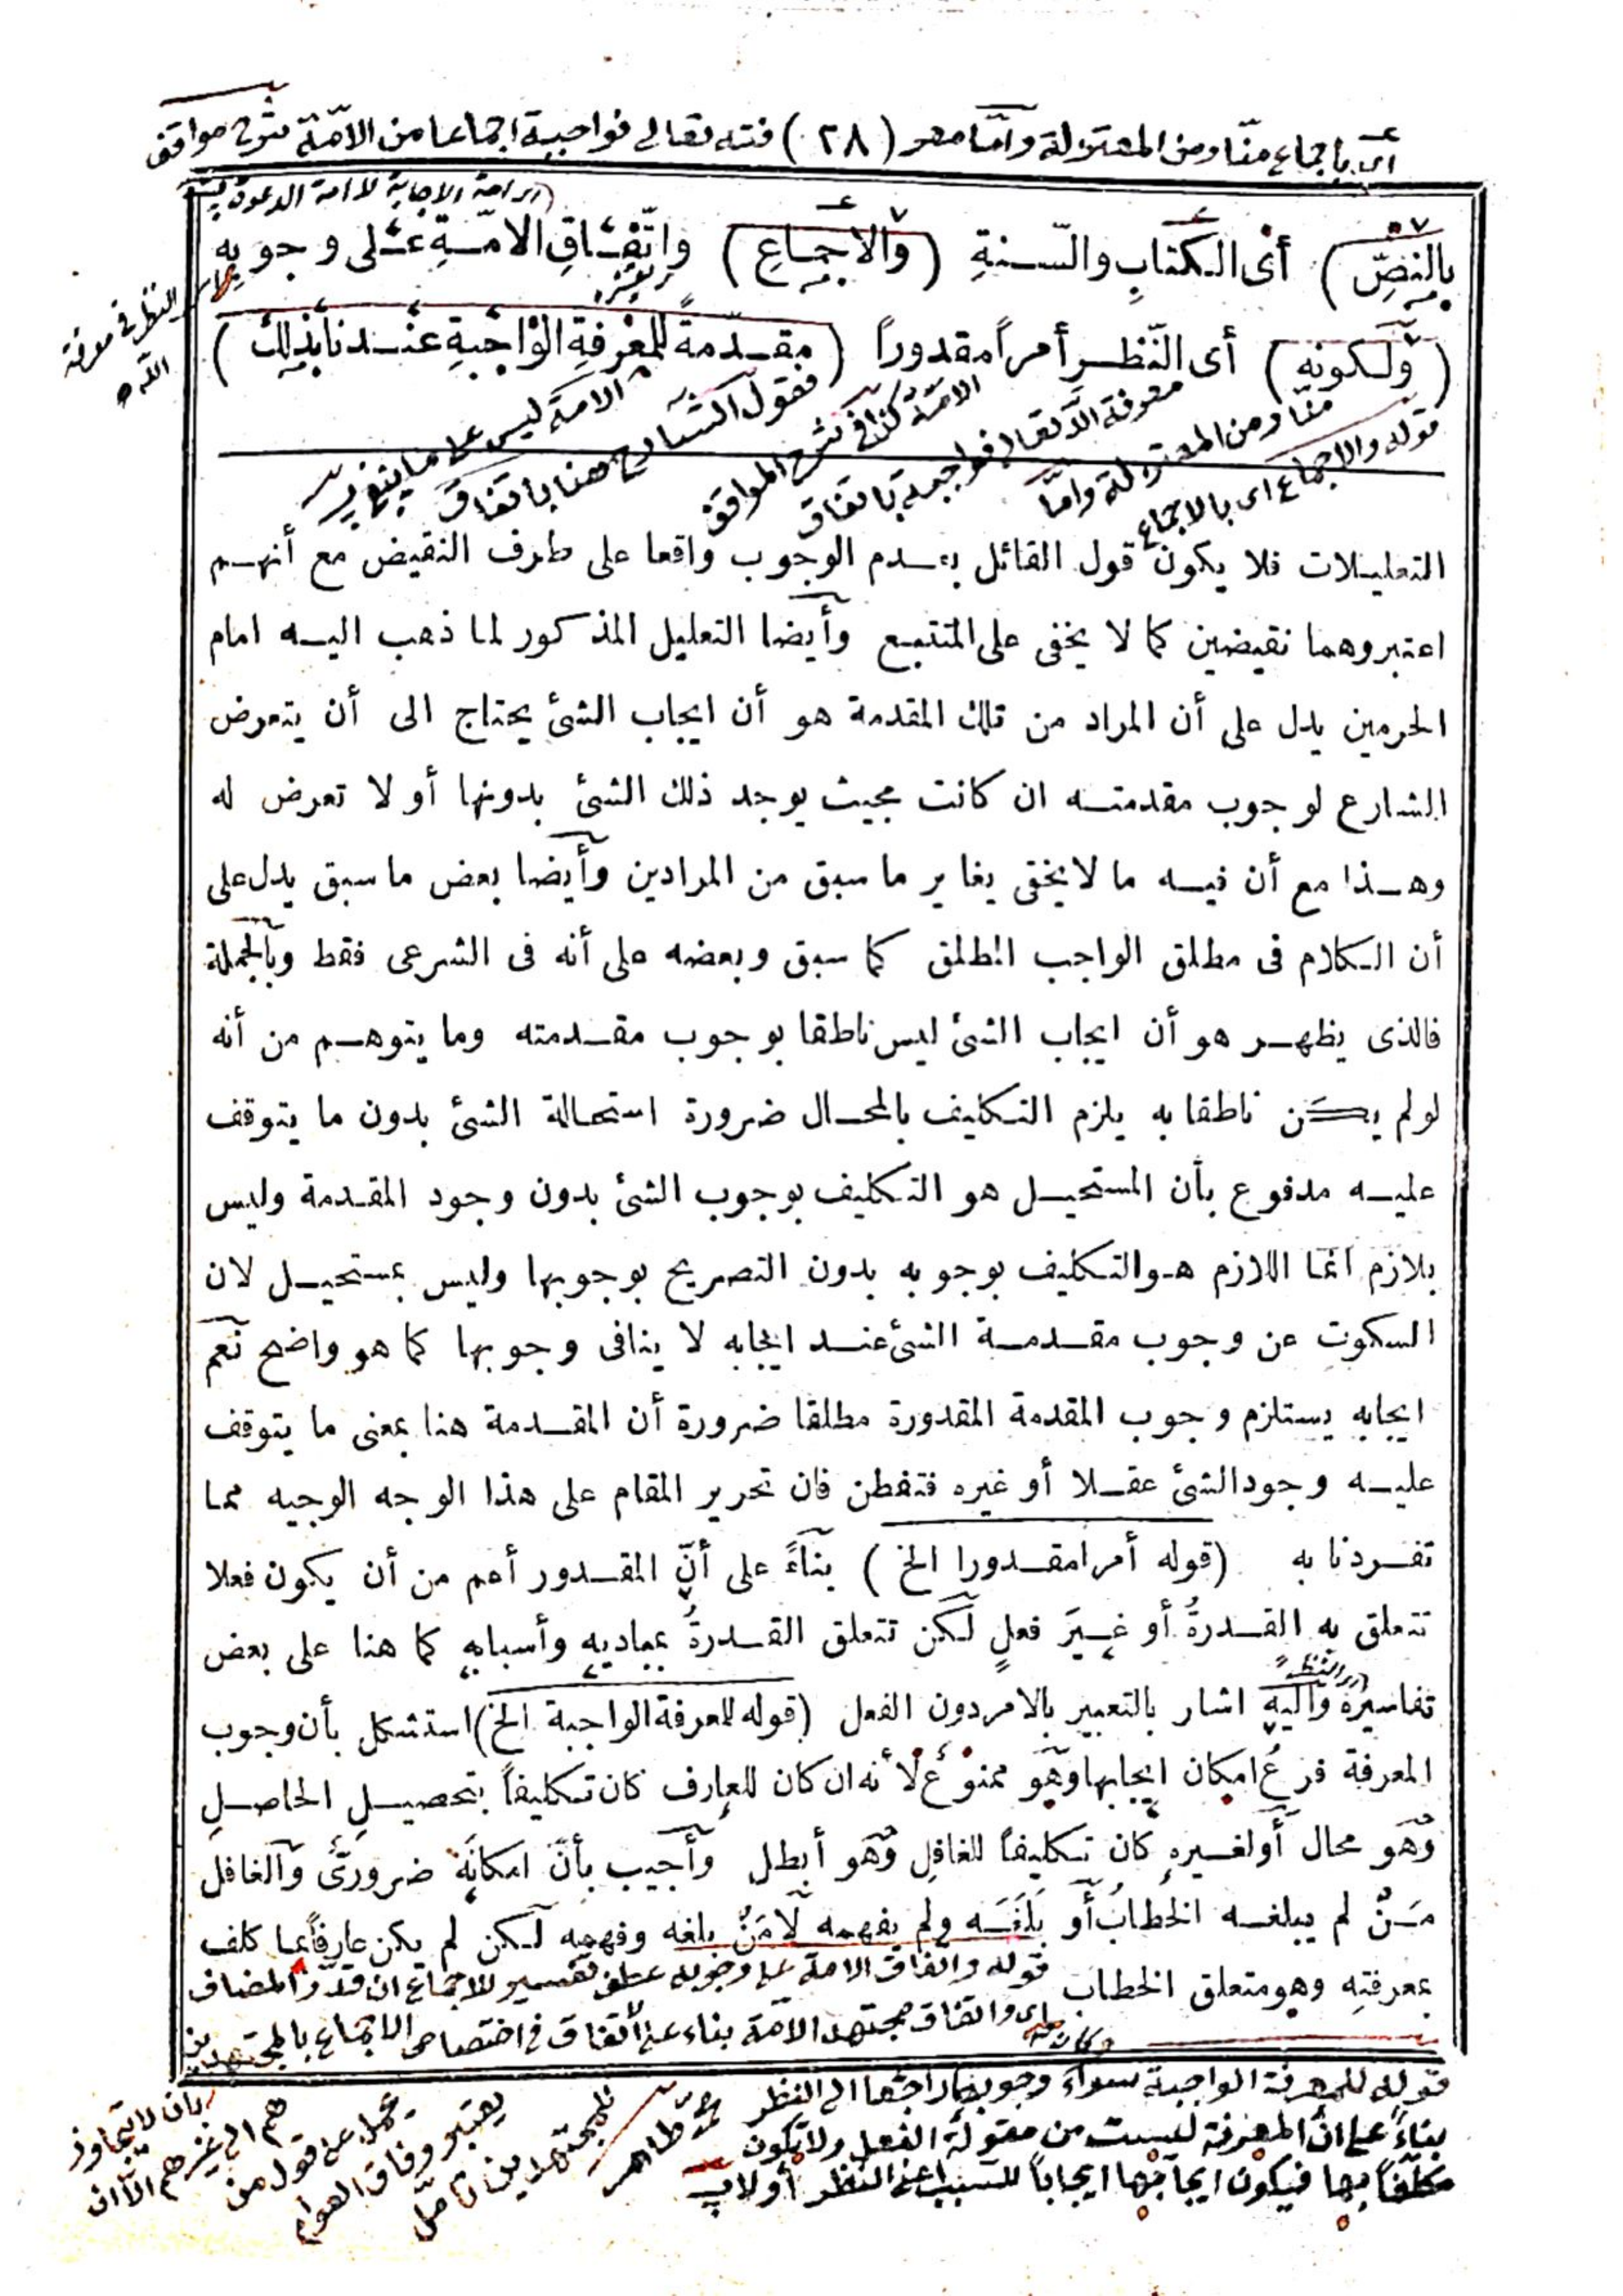 اى باجماع منّا ومن المعتزلة وامّا معر (٢٨) فته تعالى فواجبة اجماعا من الامّة شرح مواقف
(اى امة الاجابة لا امة الدعوة
بالنصِّ) أى الكتابِ والسّنةِ (والاجماعِ) واتّفاقِ الامّةِ على وجوبه
النظر فى معرفة
الله
(ولكونهِ) أى النّظرِ أمراً مقدوراً (مقدّمةً للمعْرفةِ الوْاجبةِ عنْدنا بذلك)
قوله والاجماع اى بالاجماع
منّا ومن المعتزلة وامّا
معرفة الله تعالى فواجبة باتفاق
الامّة كذا فى شرح المواقف
فقول الشارح هنا باتفاق
الامة ليس على ما ينبغى
التعليلات فلا يكون قول القائل بعدم الوجوب واقعا على طرف النقيض مع أنهم
اعتبروهما نقيضين كما لا يخفى على المتتبع وأيضا التعليل المذكور لما ذهب اليه امام
الحرمين يدل على أن المراد من تلك المقدمة هو أن ايجاب الشئ يحتاج الى أن يتعرض
الشارع لوجوب مقدمته ان كانت بحيث يوجد ذلك الشئ بدونها أو لا تعرض له
وهذا مع أن فيه ما لا يخفى يغاير ما سبق من المرادين وأيضا بعض ما سبق يدل على
أن الكلام فى مطلق الواجب المطلق كما سبق وبعضه على أنه فى الشرعى فقط وبالجملة
فالذى يظهر هو أن ايجاب الشئ ليس ناطقا بوجوب مقدمته وما يتوهم من أنه
لو لم يكن ناطقا به يلزم التكليف بالمحال ضرورة استحالة الشئ بدون ما يتوقف
عليه مدفوع بأن المستحيل هو التكليف بوجوب الشئ بدون وجود المقدمة وليس
بلازم انما اللازم هو التكليف بوجوبه بدون التصريح بوجوبها وليس بمستحيل لان
السكوت عن وجوب مقدمة الشئ عند ايجابه لا ينافى وجوبها كما هو واضح نعم
ايجابه يستلزم وجوب المقدمة المقدورة مطلقا ضرورة أن المقدمة هنا بمعنى ما يتوقف
عليه وجود الشئ عقلا أو غيره فتفطن فان تحرير المقام على هذا الوجه الوجيه مما
تفردنا به (قوله أمرا مقدورا الخ) بناءً على أنّ المقدور أعم من أن يكون فعلا
تتعلق به القدرةُ أو غيرَ فعلٍ لكن تتعلق القدرةُ بمباديهِ وأسبابهِ كما هنا على بعض
(اى النظر)
تفاسيره واليه اشار بالتعبير بالامر دون الفعل (قوله للمعرفة الواجبة الخ) استشكل بأن وجوب
المعرفة فرعُ امكان ايجابها وهو ممنوعٌ لأنه ان كان للعارف كان تكليفاً بتحصيلِ الحاصلِ
وهو محال أو لغيرهِ كان تكليفاً للغافلِ وهو أبطل وأجيب بأنّ امكانَه ضرورىٌّ والغافل
مَنْ لم يبلغه الخطابُ أو بَلَغَه ولم يفهمه لا مَنْ بلغه وفهمه لكن لم يكن عارفاً بما كلف
بمعرفتِهِ وهو متعلق الخطاب
قوله واتفاق الامة على وجوبه عطف تفسير للاجماع ان قدّر المضاف
اى واتفاق مجتهدى الامّة بناء على الاتفاق فى اختصاص الاجماع بالمجتهدين
قوله للمعرفة الواجبة سواء وجوبها راجعا الى النظر
بناءً على انّ المعرفة ليست من مقولة الفعل ولا يكون
مكلّفاً بها فيكون ايجابها ايجاباً للسبب اعنى النظر أو لا
بان لا يتجاوز
هم الى غيرهم الّا ان
يحمل على قول من
يعتبر وفاق العوام
للمجتهدين تأمّل